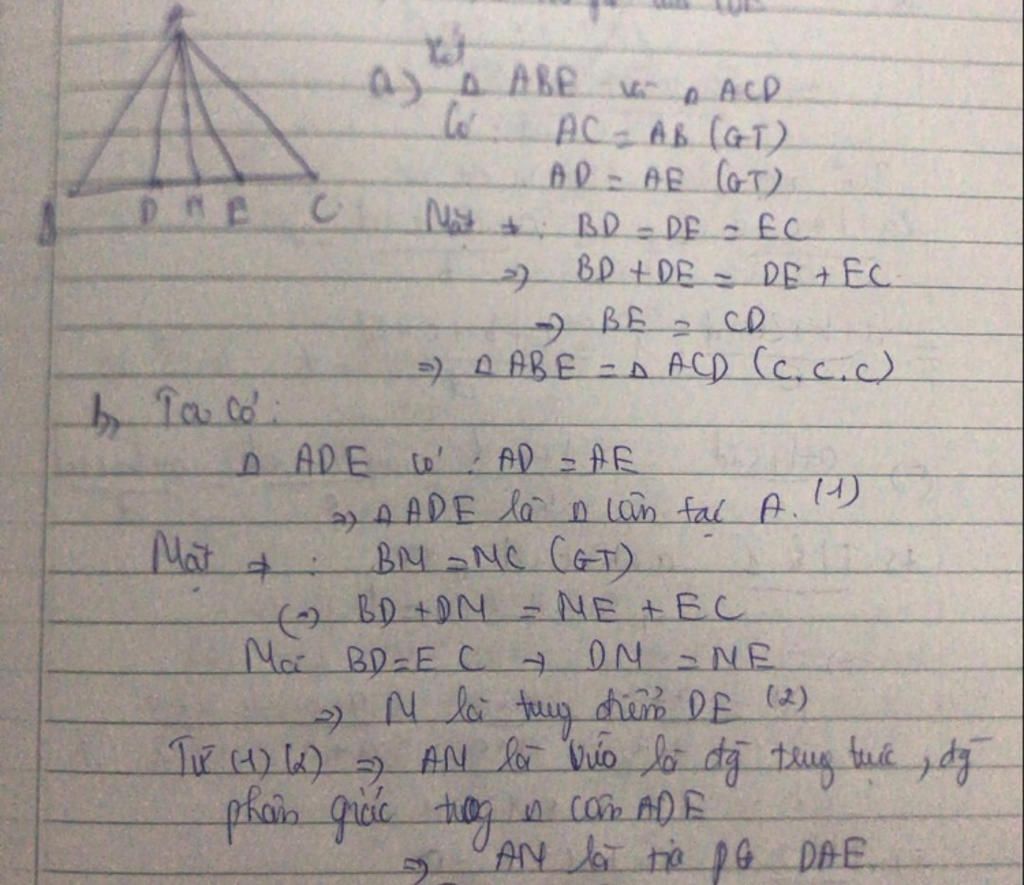 A
B D M E C
Xét
a) Δ ABE và Δ ACD
Có: AC = AB (GT)
AD = AE (GT)
Mặt ≠: BD = DE = EC
=> BD + DE = DE + EC
=> BE = CD
=> Δ ABE = Δ ACD (c.c.c)
b, Ta có:
Δ ADE có: AD = AE
=> Δ ADE là Δ cân tại A. (1)
Mặt ≠: BM = MC (GT)
(=) BD + DM = ME + EC
Mà BD = EC → DM = ME
=> M là trung điểm DE (2)
Từ (1) (2) => AM là vừa là đg trung trực, đg
phân giác trong Δ cân ADE
=> AM là tia PG DAE